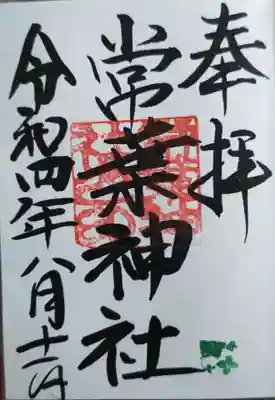 奉拝
常葉神社
令和四年八月十二日